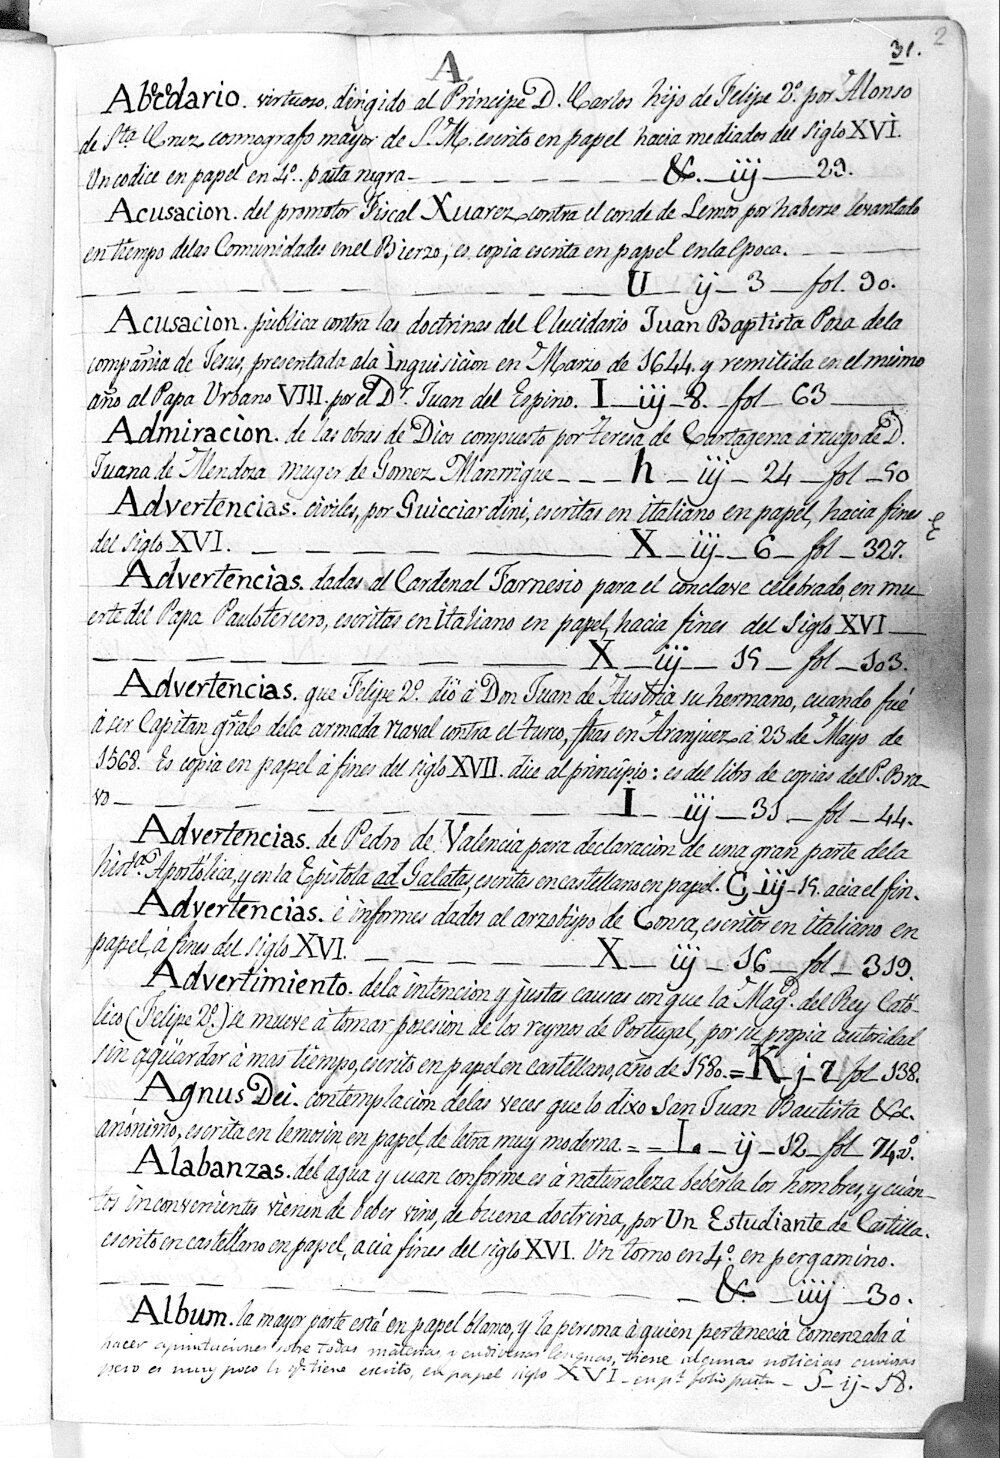 31.
2
A.
Abecedario. virtuoso, dirigido al Principe D. Carlos hijo de Felipe 2º. por Alonso
de Sta. Cruz cosmografo mayor de S. M. escrito en papel hacia mediados del siglo XVI.
Un codice en papel en 4º. pasta negra - &. iij 29.
Acusacion. del promotor Fiscal Xuarez contra el conde de Lemos por haberse levantado
en tiempo de las Comunidades en el Bierzo; es copia escrita en papel en la epoca.
U ij 3 fol. 90.
Acusacion. publica contra las doctrinas del Elucidario Juan Baptista Poza de la
compañia de Jesus, presentada a la Inquisicion en Marzo de 1644. y remitida en el mismo
año al Papa Urbano VIII. por el Dr. Juan del Espino. I iij 8. fol 63
Admiracion. de las obras de Dios compuesto por Teresa de Cartagena á ruego de D.
Juana de Mendoza muger de Gomez Manrrique h iij 24 fol 50
Advertencias. civiles, por Guicciardini, escritas en italiano en papel, hacia fines
del siglo XVI. X iij 6 fol 327.
Advertencias. dadas al Cardenal Farnesio para el conclave celebrado, en mu-
erte del Papa Paulo tercero, escritas en italiano en papel, hacia fines del siglo XVI
X iij 15 fol 103.
Advertencias. que Felipe 2º. dió á Don Juan de Austria su hermano, cuando fué
á ser Capitan gral de la armada naval contra el turco, fhas en Aranjuez á 23 de Mayo de
1568. Es copia en papel á fines del siglo XVII. dice al principio: es del libro de copias del P. Bra-
vo I iij 31 fol 44.
Advertencias. de Pedro de Valencia para declaracion de una gran parte de la
hista. Apostólica, y en la Epistola ad Galatas, escritas en castellano en papel. Ç iij 15. acia el fin.
Advertencias. é informes dados al arzobispo de Conza, escritos en italiano en
papel, á fines del siglo XVI. X iij 16 fol 319.
Advertimiento. de la intencion y justas causas con que la Magd. del Rey Cató-
lico (Felipe 2º.) se mueve á tomar posesion de los reynos de Portugal, por su propia autoridad
sin agüardar á mas tiempo, escrito en papel en castellano, año de 1580. = K j 7 fol 138.
Agnus Dei. contemplacion de las veces que lo dixo San Juan Bautista &c.
anónimo, escrita en lemosin en papel, de letra muy moderna = = L. ij 12 fol 74 v.º
Alabanzas. del agua y cuan conforme es á naturaleza beberla los hombres, y cuán-
tos inconvenientes vienen de beber vino, de buena doctrina, por Un Estudiante de Castilla.
escrito en castellano en papel, acia fines del siglo XVI. Un tomo en 4º. en pergamino.
&. iiij 30.
Album. la mayor parte está en papel blanco, y la persona á quien pertenecia comenzaba á
hacer apuntaciones sobre todas materias, y en diversas lenguas, tiene algunas noticias curiosas
pero es muy poco lo qe. tiene escrito, en papel siglo XVI en pº. folio pasta - S ij 18.